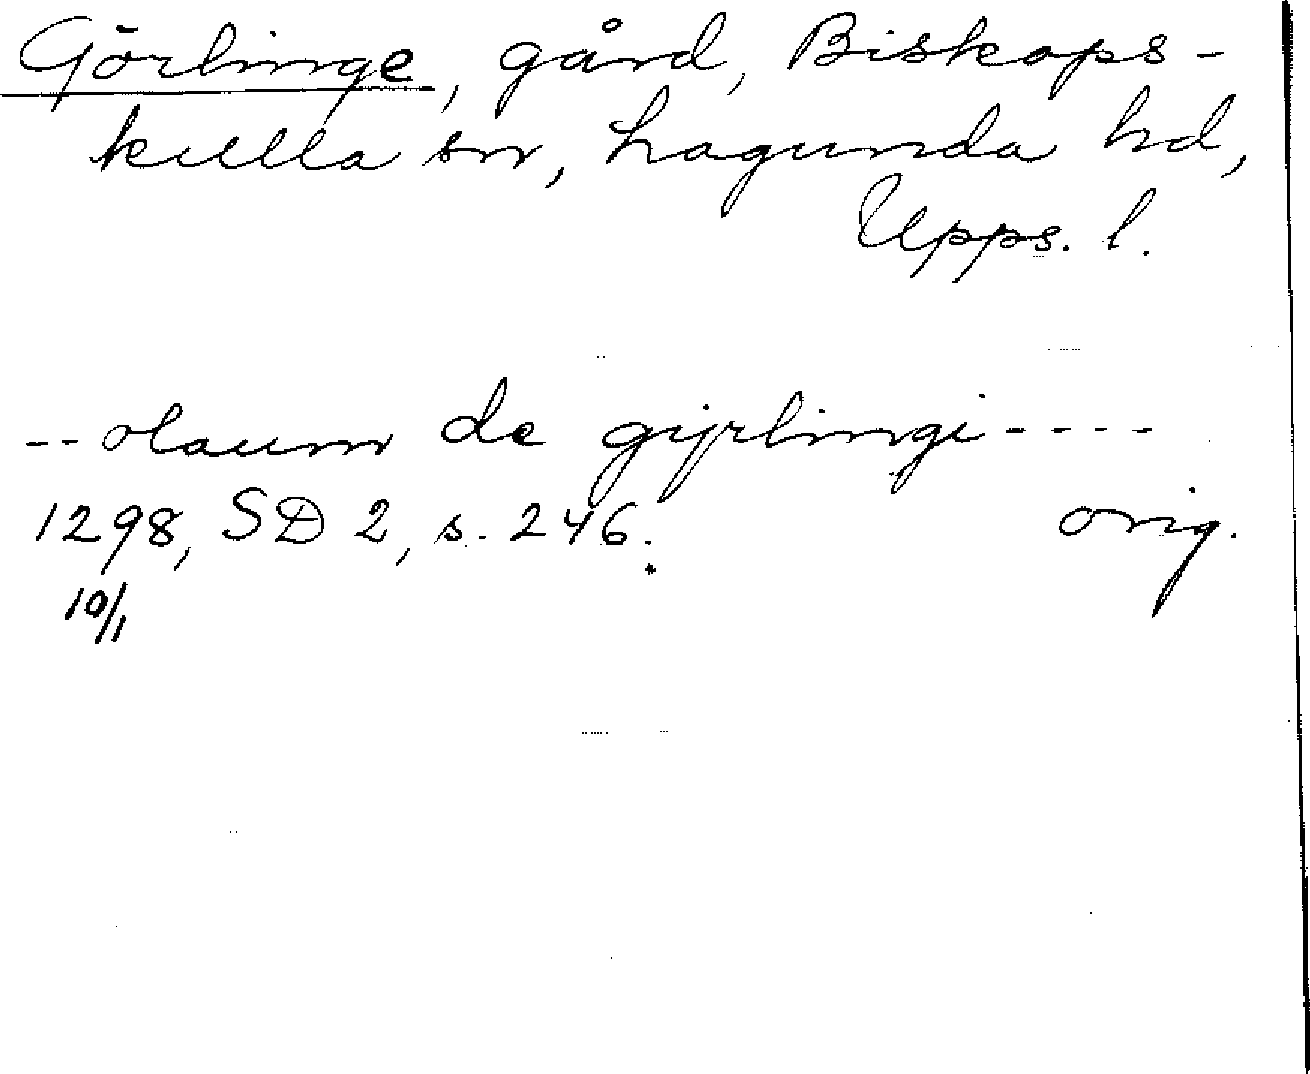 Görlinge, gård, Biskops-
kulla sn, Lagunda hd,
Upps. l.
-- olaum de gijrlingi ----
1298, SD 2, s. 246. orig.
10/1